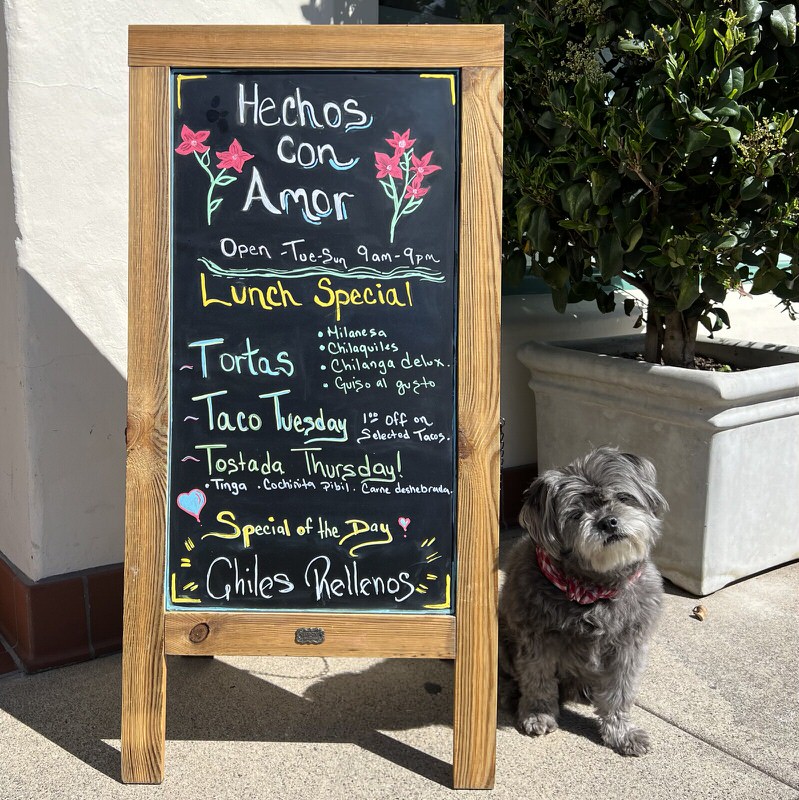 Hechos
con
Amor
Open - Tue-Sun 9am-9pm
Lunch Special
~ Tortas
• Milanesa
• Chilaquiles
• Chilanga delux.
• Guiso al gusto
~ Taco Tuesday
1⁰⁰ Off on
Selected Tacos.
~ Tostada Thursday!
• Tinga . Cochinita Pibil . Carne deshebrada.
Special of the Day
Chiles Rellenos